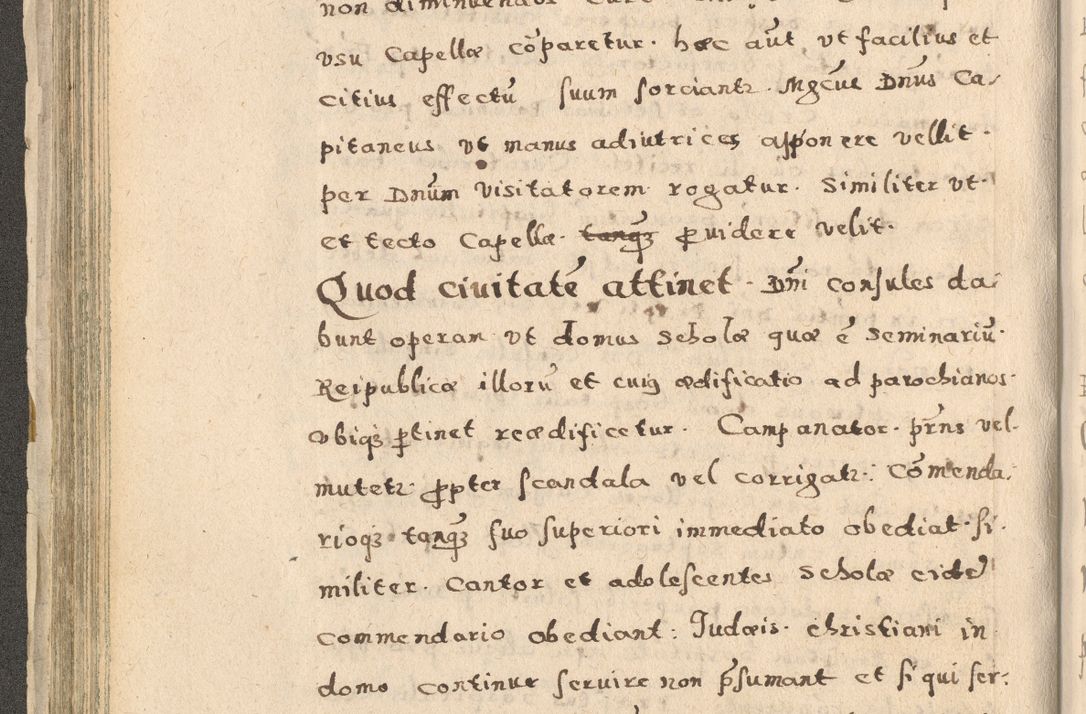 non diminuendos
usu Capellæ cōparetur. hæc aūt, ut facilius et
citius effectū suum sorciantr. Mgcūs Dnūs Ca-
pitaneus ut manus adiutrices apponere vellit.
per Dnūm visitatorem rogatur. Similiter ut.
et tecto Capellæ. tanqȝ ꝓuidere velit.
Quod ciuitatē attinet. Dn̄i consules da-
bunt operam ut domus Scholæ quæ ē Seminariū.
Reipublicæ illorū et cuiꝯ ædificatio ad parochianos.
vbiqȝ ꝑtinet reædificetur. Campanator. pr̄ns vel.
mutetr ꝓpter scandala vel corrigatr: Cōmenda-
rioqȝ tanqȝ suo superiori immediato obediat. si.
militer. Cantor et adolescentes Scholæ eidē
commendario obediant: Iudæis. christiani in
domo continue seruire non p̄sumant et si qui ser: